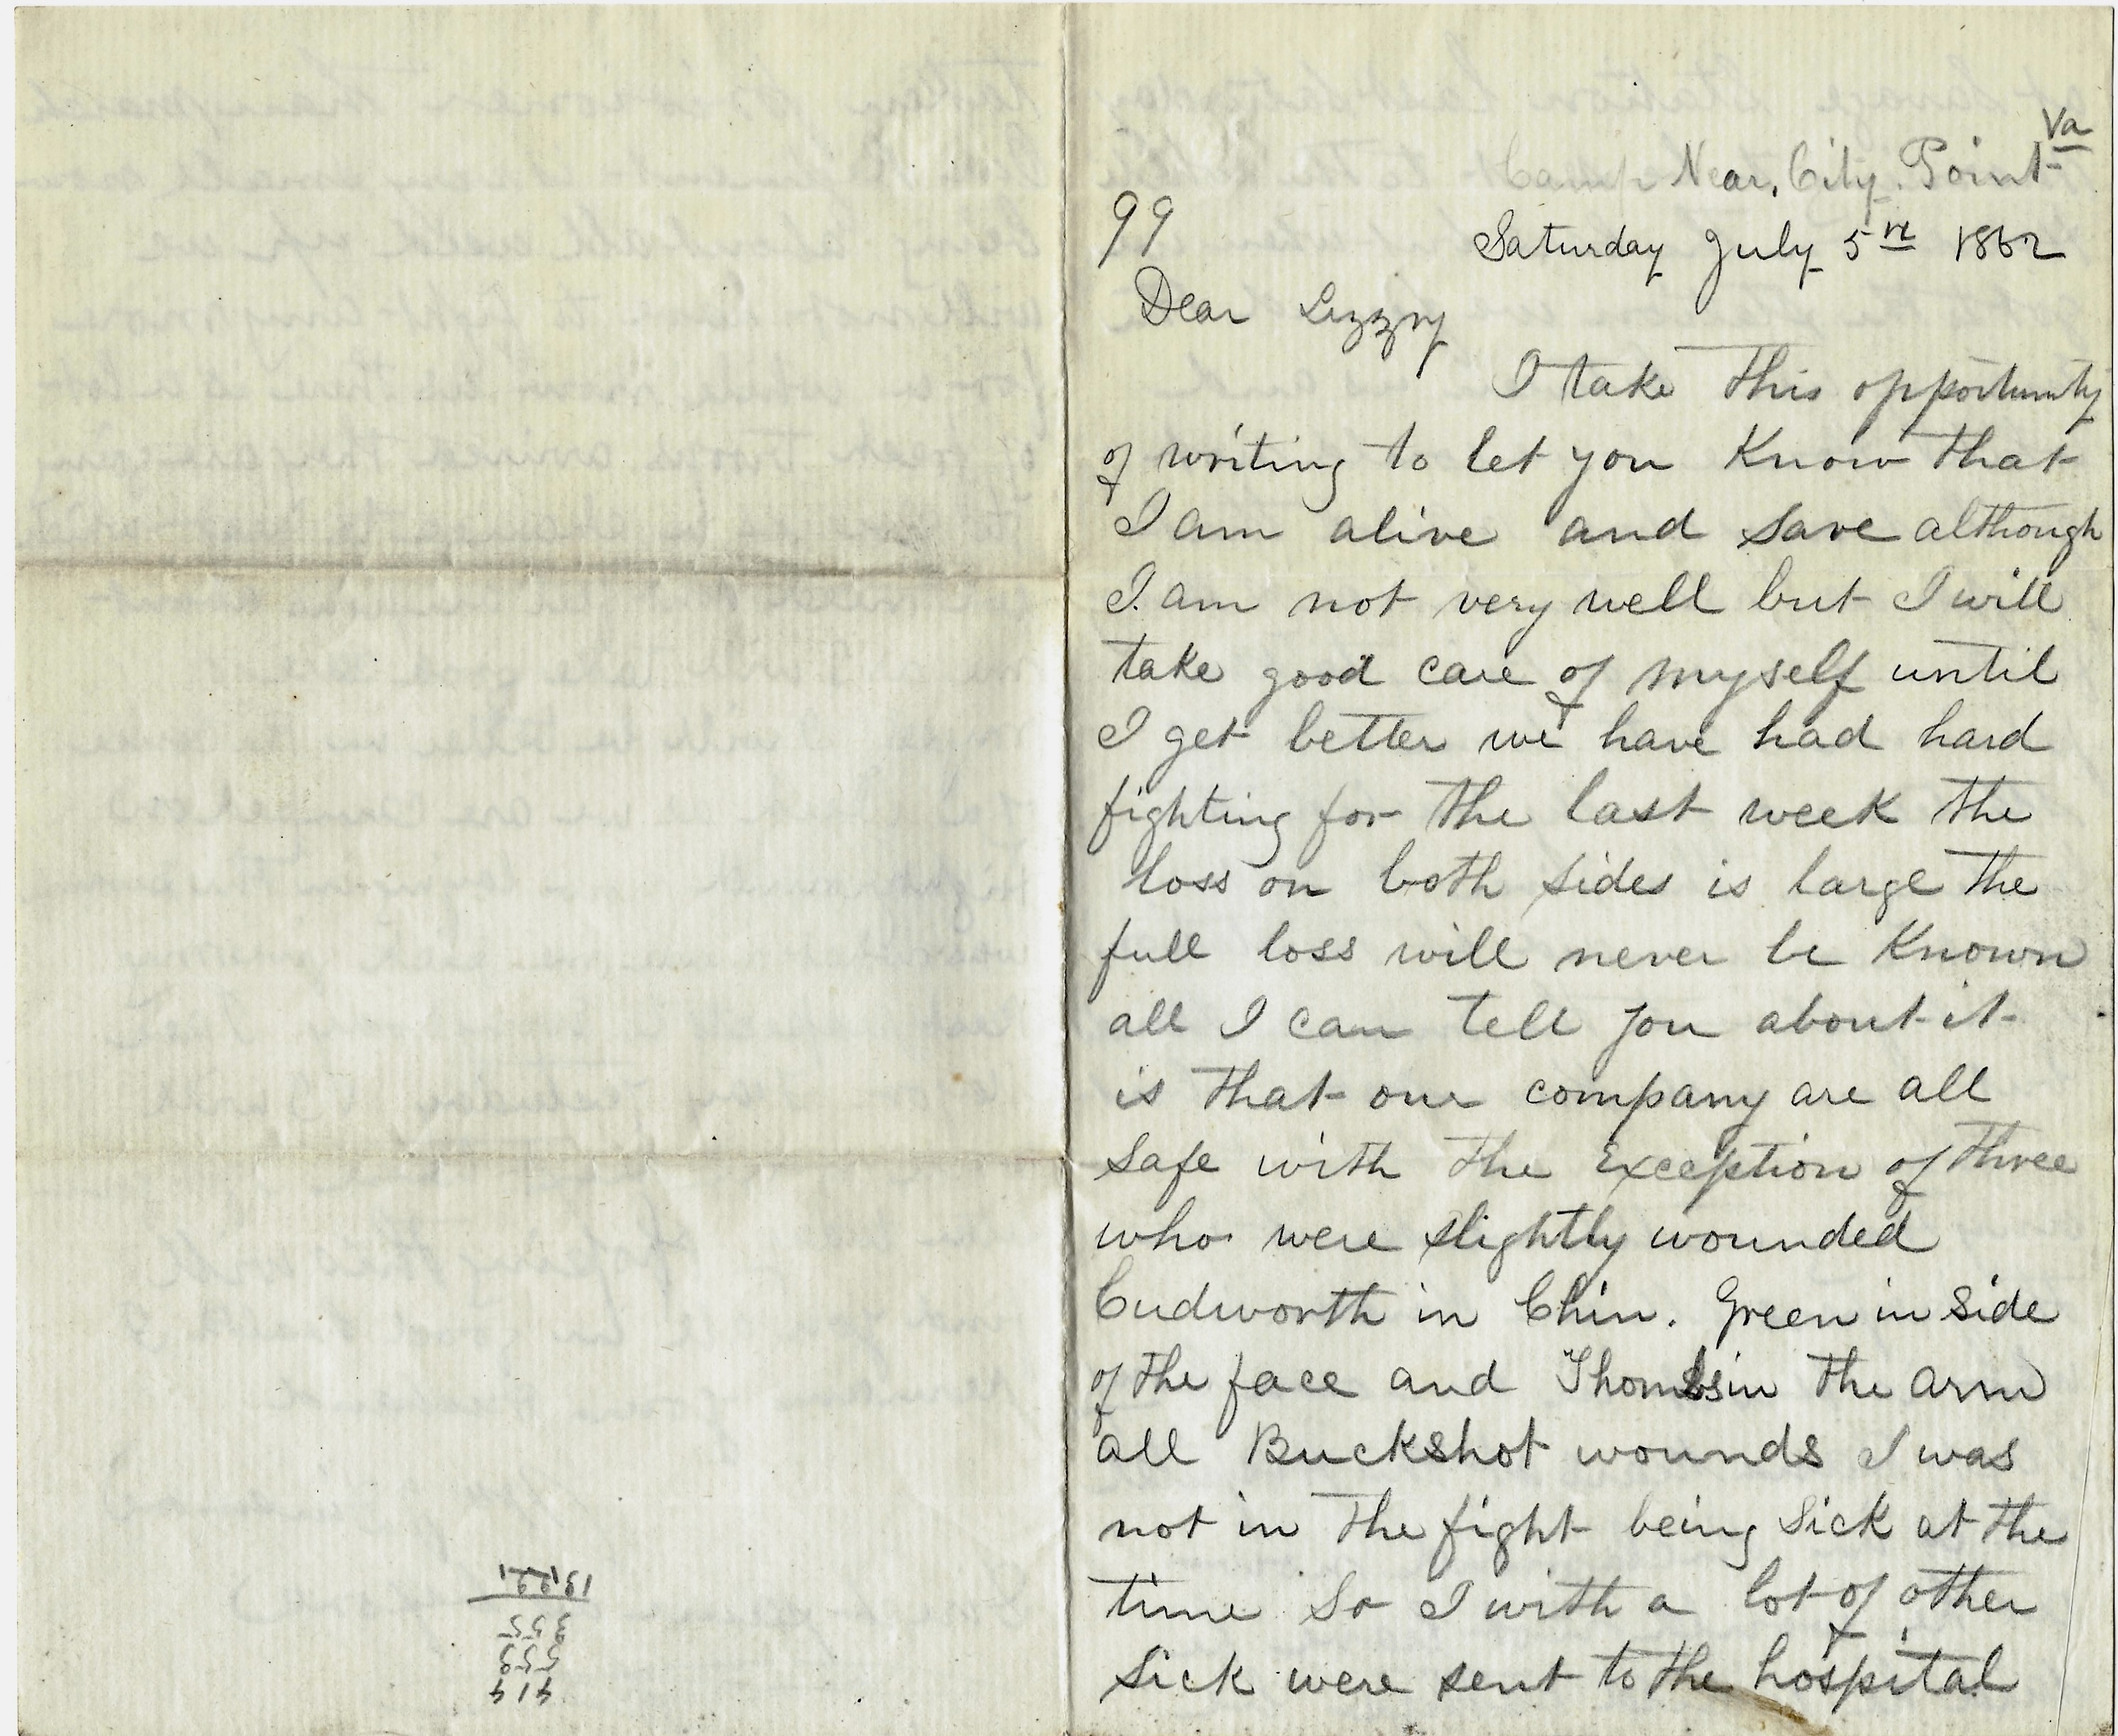 Va
Camp Near, City. Point
99
Saturday July 5th 1862
Dear Lizzy
I take this opportunity
of writing to let you Know that
I am alive and save although
I. am not very well but I will
take good care of myself until
I get better we have had hard
fighting for the last week the
loss on both sides is large the
full loss will never be Known
all I can tell you about it
is that our company are all
safe with the exception of three
who were slightly wounded
Cudworth in Chin. Green in side
of the face and in the arm
all Buckshot wounds I was
not in the fight being Sick at the
time So I with a lot of other
Sick were sent to the hospital
414
559
355